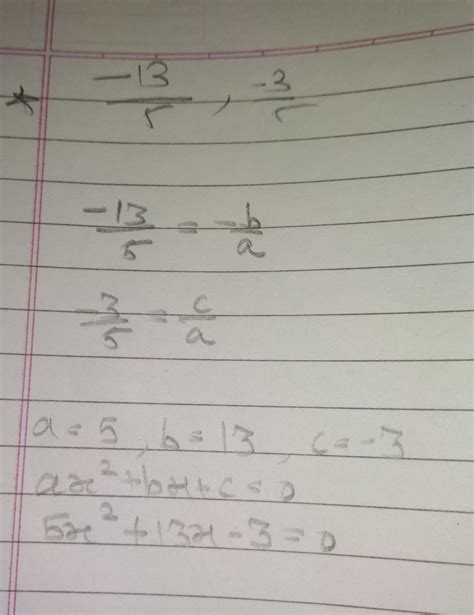 * -13/5 , -3/5
-13/5 = -b/a
-3/5 = c/a
a = 5 , b = 13 , c = -3
ax² + bx + c = 0
5x² + 13x - 3 = 0